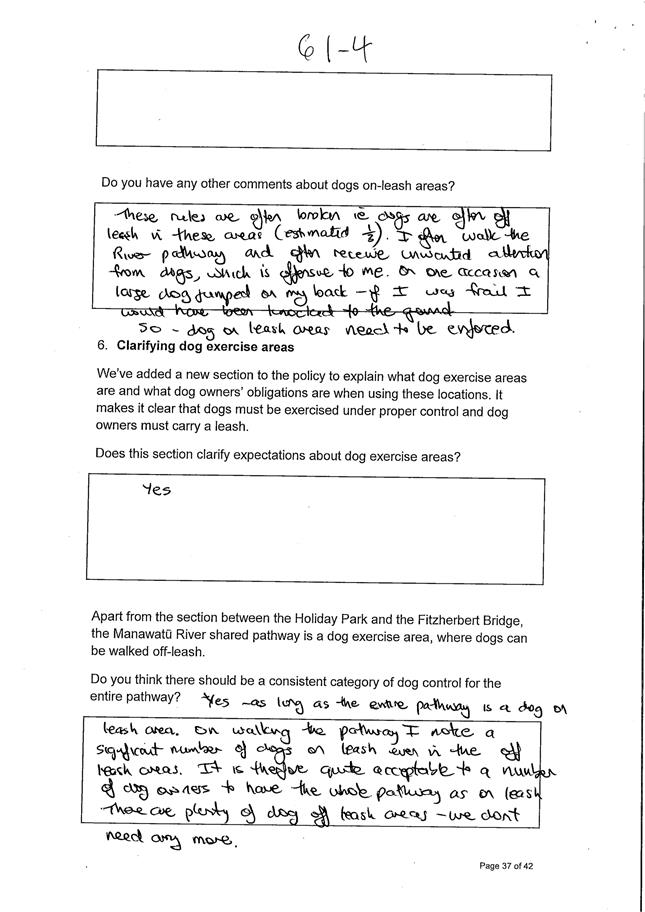 61-4
Do you have any other comments about dogs on-leash areas?
These rules are often broken ie dogs are often off
leash in these areas (estimated ½). I often walk the
River pathway and often receive unwanted attention
from dogs, which is offensive to me. On one occasion a
large dog jumped on my back - if I was frail I
would have been knocked to the ground
So - dog on leash areas need to be enforced.
6. Clarifying dog exercise areas
We've added a new section to the policy to explain what dog exercise areas
are and what dog owners' obligations are when using these locations. It
makes it clear that dogs must be exercised under proper control and dog
owners must carry a leash.
Does this section clarify expectations about dog exercise areas?
Yes
Apart from the section between the Holiday Park and the Fitzherbert Bridge,
the Manawatū River shared pathway is a dog exercise area, where dogs can
be walked off-leash.
Do you think there should be a consistent category of dog control for the
entire pathway? Yes - as long as the entire pathway is a dog on
leash area. On walking the pathway I note a
significant number of dogs on leash even in the off
leash areas. It is therefore quite acceptable to a number
of dog owners to have the whole pathway as on leash
There are plenty of dog off leash areas - we dont
need any more.
Page 37 of 42